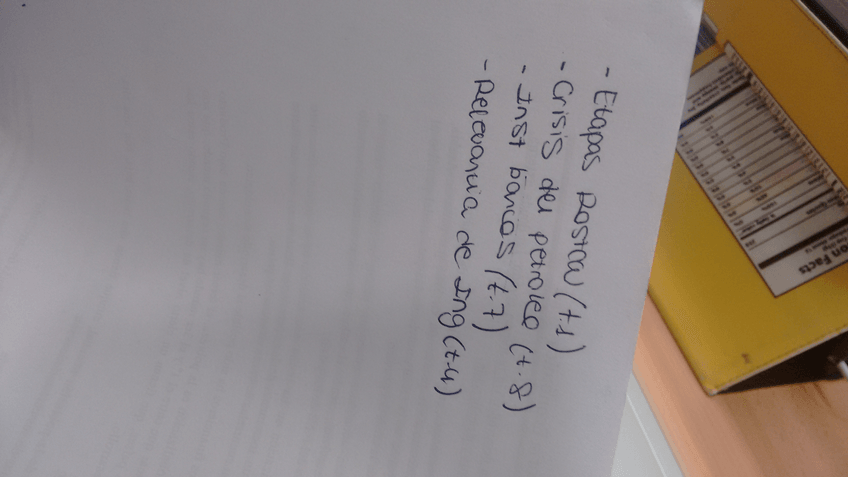 - Etapas Rostow (t.1)
- Crisis del petroleo (t.8)
- Inst bancos (t.7)
- Relevancia de Ing (t.4)
on Facts